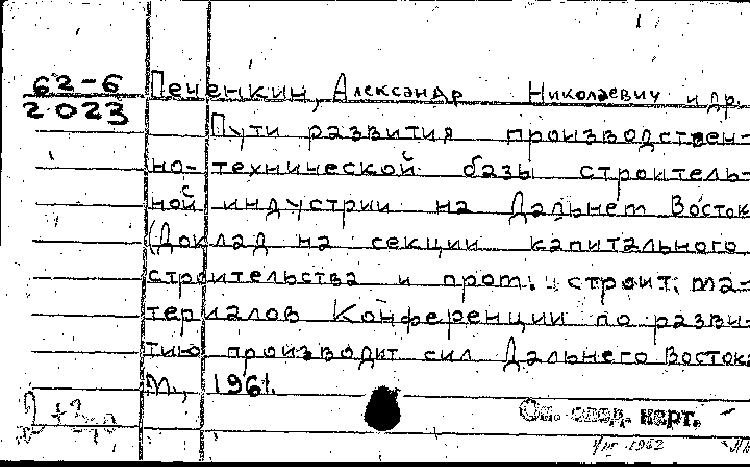 62-6
2023
Печенкин, Александр Николаевич и др.
Пути развития производствен-
но-технической базы строитель-
ной индустрии на Дальнем Восток
(Доклад на секции капитального
строительства и пром. и строит. ма-
териалов Конференции по разви-
тию производит сил Дальнего Востока
М., 1961.
См. след. карт.
1962